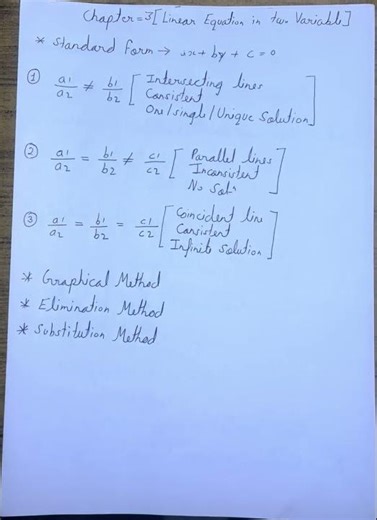 Chapter=3[Linear Equation in two Variable]
* Standard Form → ax + by + c = 0
① a1/a2 ≠ b1/b2 [Intersecting lines
Consistent
One/single/Unique Solution]
② a1/a2 = b1/b2 ≠ c1/c2 [Parallel lines
Inconsistent
No Solⁿ]
③ a1/a2 = b1/b2 = c1/c2 [Coincident line
Consistent
Infinite Solution]
* Graphical Method
* Elimination Method
* Substitution Method